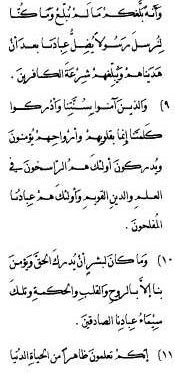 وأنه بلغكم ما لم نبلغ وما كنا
لنرسل رسولاً يضل عبادنا بعد أن
هديناهم ونبلغهم شرعة الكافرين.
(٩) والذين آمنوا بسنتنا وأدركوا
كلمتنا إنما بقلوبهم وأرواحهم يؤمنون
ويدركون أولئك هم الراسخون في
العلم والدين القويم وأولئك هم عبادنا
المفلحون.
(١٠) وما كان لبشر أن يدرك الحق ويؤمن
بنا إلا بالروح والقلب والحكمة وتلك
سيماء عبادنا الصادقين.
(١١) إنكم تعلمون ظاهراً من الحياة الدنيا